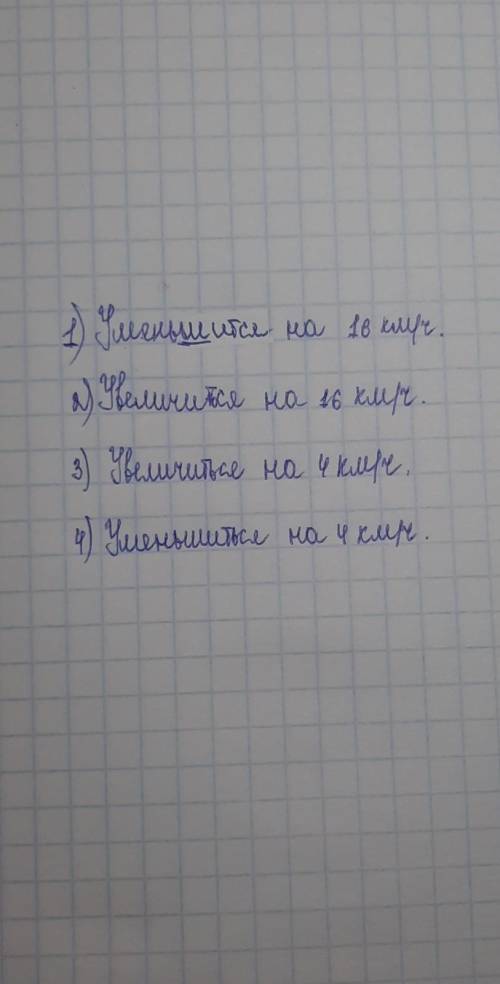 1) Уменьшится на 16 км/ч.
2) Увеличится на 16 км/ч.
3) Увеличиться на 4 км/ч.
4) Уменьшиться на 4 км/ч.